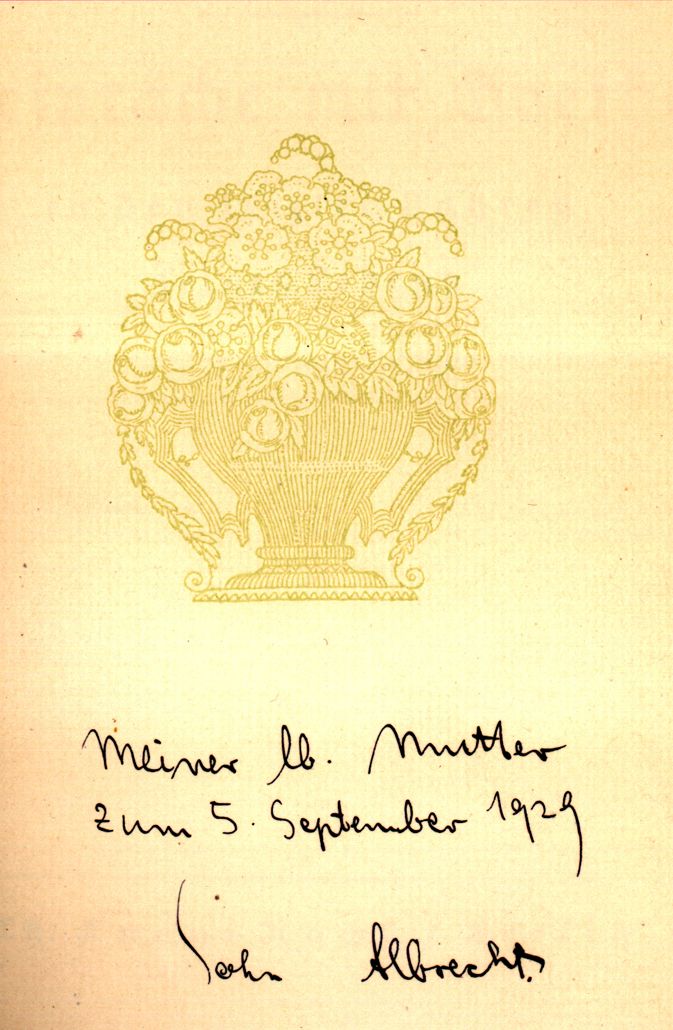 Meiner lb. Mutter
zum 5. September 1929
Sohn Albrecht.